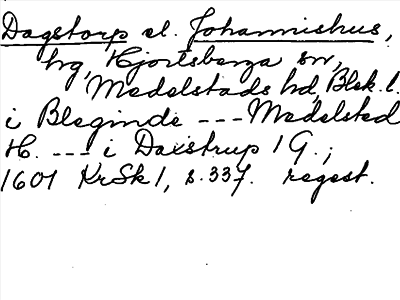 Dagstorp el. Johannishus,
hg, Hjortsberga sn,
Medelstads hd, Blek. l.
i Bleginde --- Medelsted
H. --- i Daxstrup 1 G.;
1601 KrSk 1, s. 337. regest.